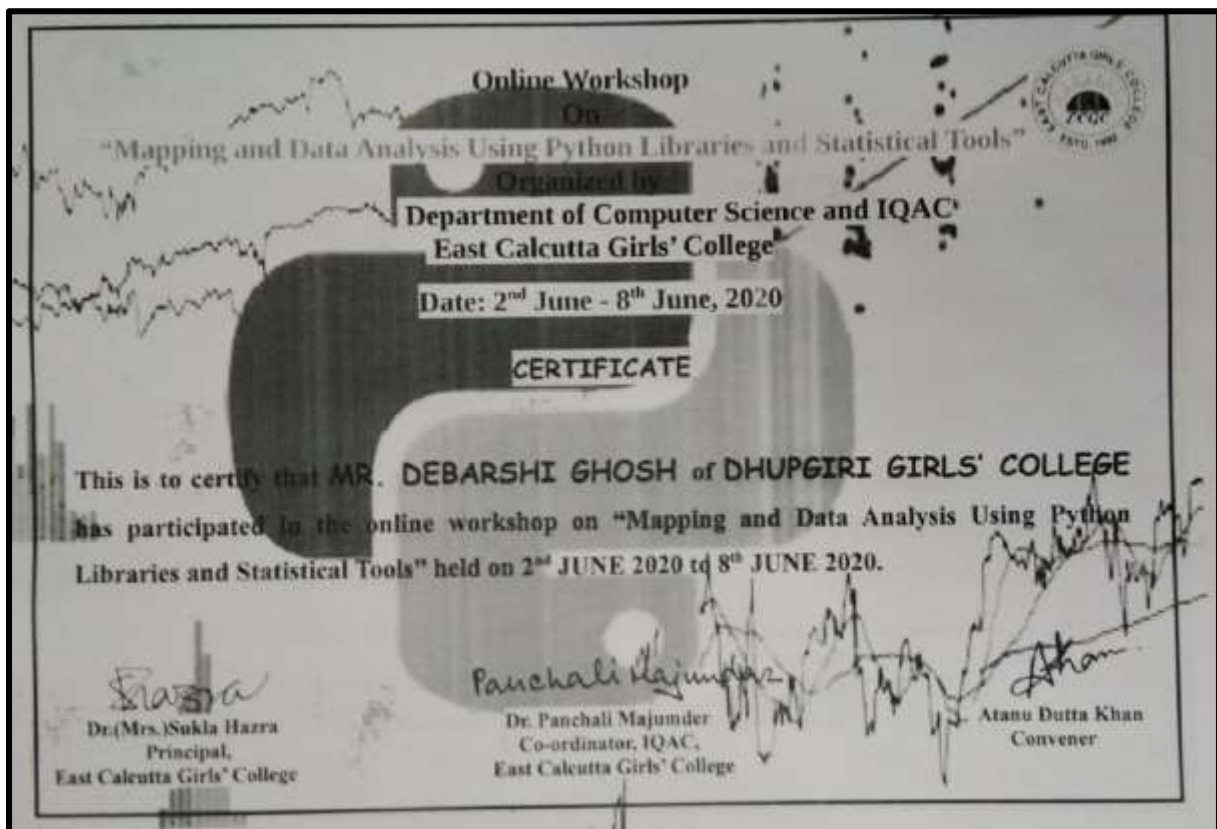 Online Workshop
On
"Mapping and Data Analysis Using Python Libraries and Statistical Tools"
Organized by
Department of Computer Science and IQAC
East Calcutta Girls' College
Date: 2nd June - 8th June, 2020
CERTIFICATE
EAST CALCUTTA GIRLS' COLLEGE
ECGC
ESTD. 1992
This is to certify that MR. DEBARSHI GHOSH of DHUPGIRI GIRLS' COLLEGE
has participated in the online workshop on "Mapping and Data Analysis Using Python
Libraries and Statistical Tools" held on 2nd JUNE 2020 to 8th JUNE 2020.
Panchali Majumdar
Dr.(Mrs.)Sukla Hazra
Principal,
East Calcutta Girls' College
Dr. Panchali Majumder
Co-ordinator, IQAC,
East Calcutta Girls' College
Atanu Dutta Khan
Convener